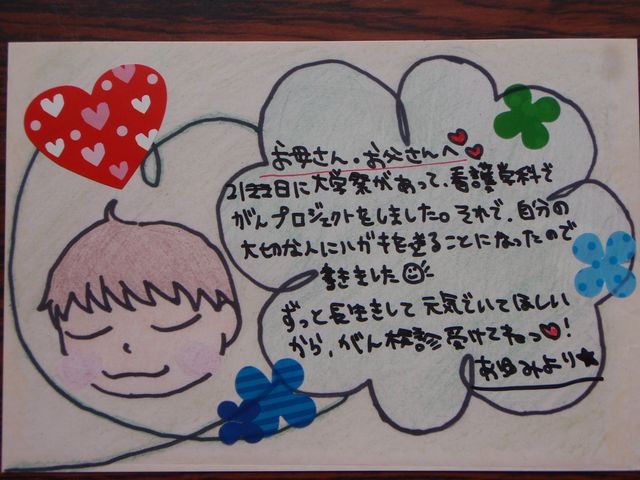 お母さん・お父さんへ
21223日に大学祭があって、看護学科で
がんプロジェクトをしました。それで、自分の
大切な人にハガキを送ることになったので
書きました
ずっと長生きして元気でいてほしい
から、がん検診受けてねっ!
あゆみより★